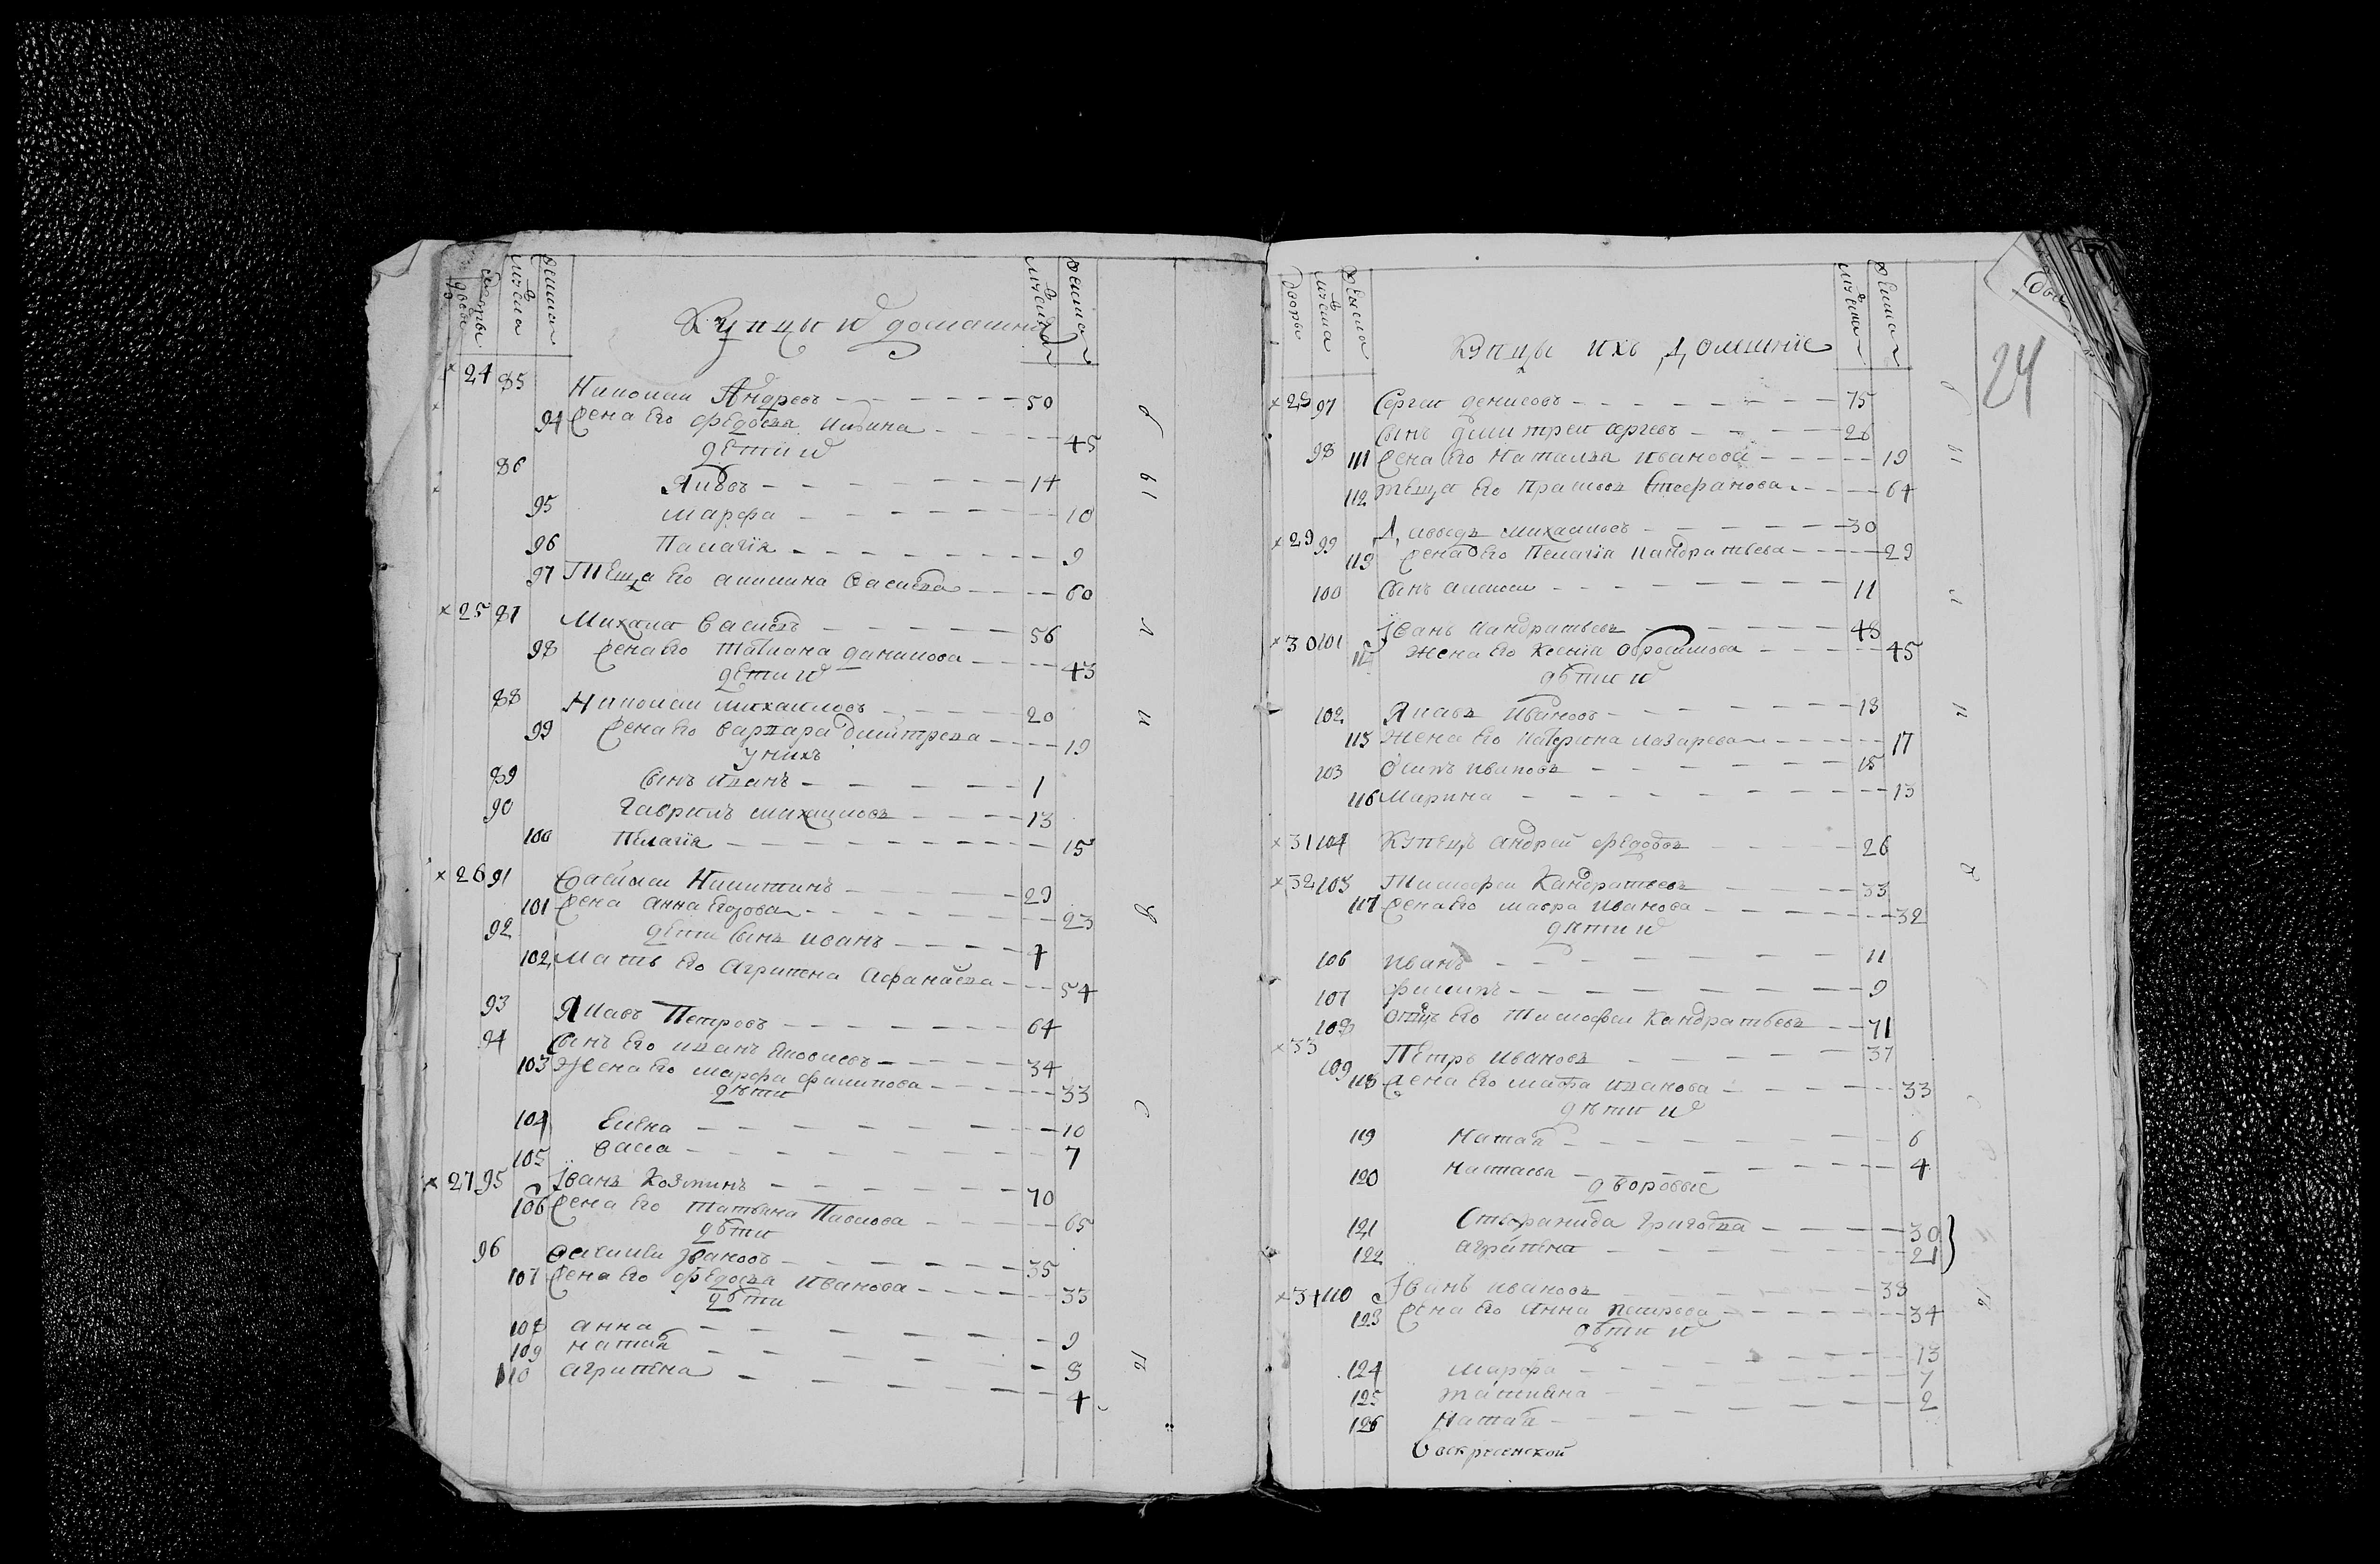 дворы мужска женска
Купцы и домашни
мужска женска
× 24 85 Николаи Андреевъ 50
94 Жена его Федосья 45
дети и
86 Яковъ 14
95 Марфа 10
96 Палагія 9
97 Теща его акилина 60
× 25 87 Михаила Василевъ 56
98 Жена его Татиана данилова 43
дети и
88 Николаи михаиловъ 20
99 Жена его варвара дмитрева 19
у нихъ
89 Сынъ иванъ 1
90 Гаврилъ михаиловъ 13
100 Пелагія 15
× 26 91 Василеи Никитинъ 29
101 Жена анна Егорова 23
92 дети Сынъ иванъ 7
102 Мать его Агрипена Афанасева 54
93 Яковъ Петровъ 64
94 Сынъ его иванъ Яковлевъ 34
103 Жена его марфа филипова 33
дѣти
104 Елена 10
105 васса 7
× 27 95 Іванъ Козминъ 70
106 Жена его татьяна Павлова 65
дѣти
96 Василеи Івановъ 35
107 Жена его Федосья иванова 33
дѣти
108 анна 9
109 наталя 8
110 агрипена 4
дворы мужска женска
Купцы ихъ домашніе
мужска женска
24
× 28 97 Сергеи денисовъ 75
98 Сынъ дмитреи сергевъ 26
111 Жена его Наталья иванова 19
112 Теща его Прасковья Стефанова 64
× 29 99 Давыдъ михаиловъ 30
113 Жена его Пелагія кандратьева 29
100 Сынъ алексеи 11
× 30 101 Іванъ кандратьевъ 48
114 Жена его Ксенія Абросимова 45
дѣти и
102 Яковъ Ивановъ 18
115 Жена его катерина лазарева 17
103 Осипъ ивановъ 15
116 Марина 13
× 31 104 Купецъ андрей федоровъ 26
× 32 105 Тимофеи Кандратьевъ 33
117 Жена его мавра иванова 32
дѣти и
106 иванъ 11
107 филипъ 9
108 отецъ его Тимофеи Кандратьевъ 71
× 33 109 Петръ ивановъ 37
118 Жена его марфа иванова 33
дѣти и
119 Наталя 6
120 Настасья 4
дворовые
121 Стефанида григорева 30
122 агрипена 21
× 34 110 Іванъ ивановъ 38
123 Жена его анна петрова 34
дѣти и
124 марфа 13
125 татиана 7
126 Наталя 2
Воскресенской